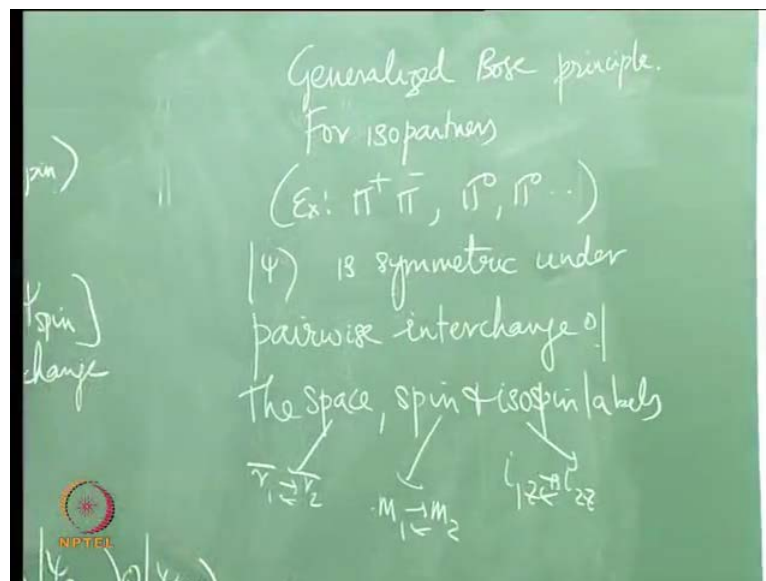 Generalized Bose principle.
For isopartners
(Ex: π⁺ π⁻, π⁰, π⁰ ...)
|ψ⟩ is symmetric under
pairwise interchange of
the space, spin & isospin labels
r̄₁ ⇄ r̄₂
m₁ ⇄ m₂
i₁z ⇄ i₂z
pin)
ψspin]
change
NPTEL